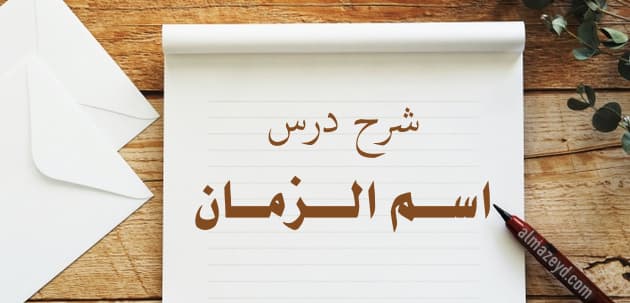 شرح درس
اسم الزمان
almazeyd.com